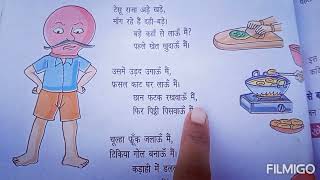 टेसू राजा अड़े खड़े,
माँग रहे हैं दही-बड़े।
बड़े कहाँ से लाऊँ मैं?
पहले खेत खुदाऊँ मैं,
उसमें उड़द उगाऊँ मैं,
फसल काट घर लाऊँ मैं।
छान फटक रखवाऊँ मैं,
फिर पिट्ठी पिसवाऊँ मैं
चूल्हा फूँक जलाऊँ मैं,
टिकिया गोल बनाऊँ मैं।
कड़ाही में
FILMIGO